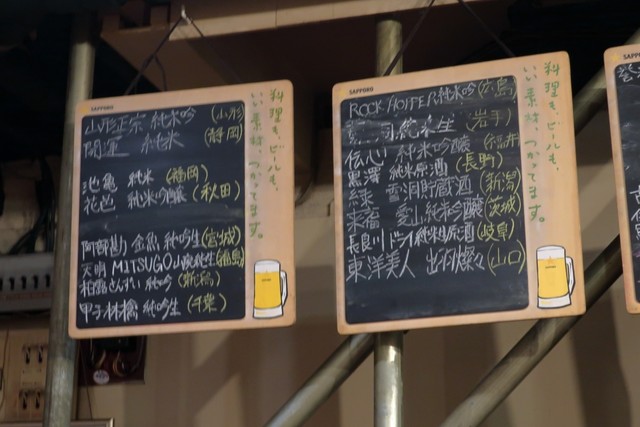 SAPPORO
山形正宗 純米吟 (山形)
開運 純米 (静岡)
池亀 純米 (静岡)
花邑 純米吟醸 (秋田)
阿部勘 金魚 純吟生 (宮城)
天明 MITSUGO 山廃純生 (福島)
純吟 (新潟)
甲子林檎 純吟生 (千葉)
料理も、ビールも、
いい素材、つかってます。
SAPPORO
純米吟 (広島)
生 (岩手)
伝心 純米吟醸 (福井)
黒澤 純米原酒 (長野)
緑 雪洞貯蔵酒 (新潟)
来福 愛山 純米吟醸 (茨城)
長良川 純米生原酒 (岐阜)
東洋美人 (山口)
料理も、ビールも、
いい素材、つかってます。